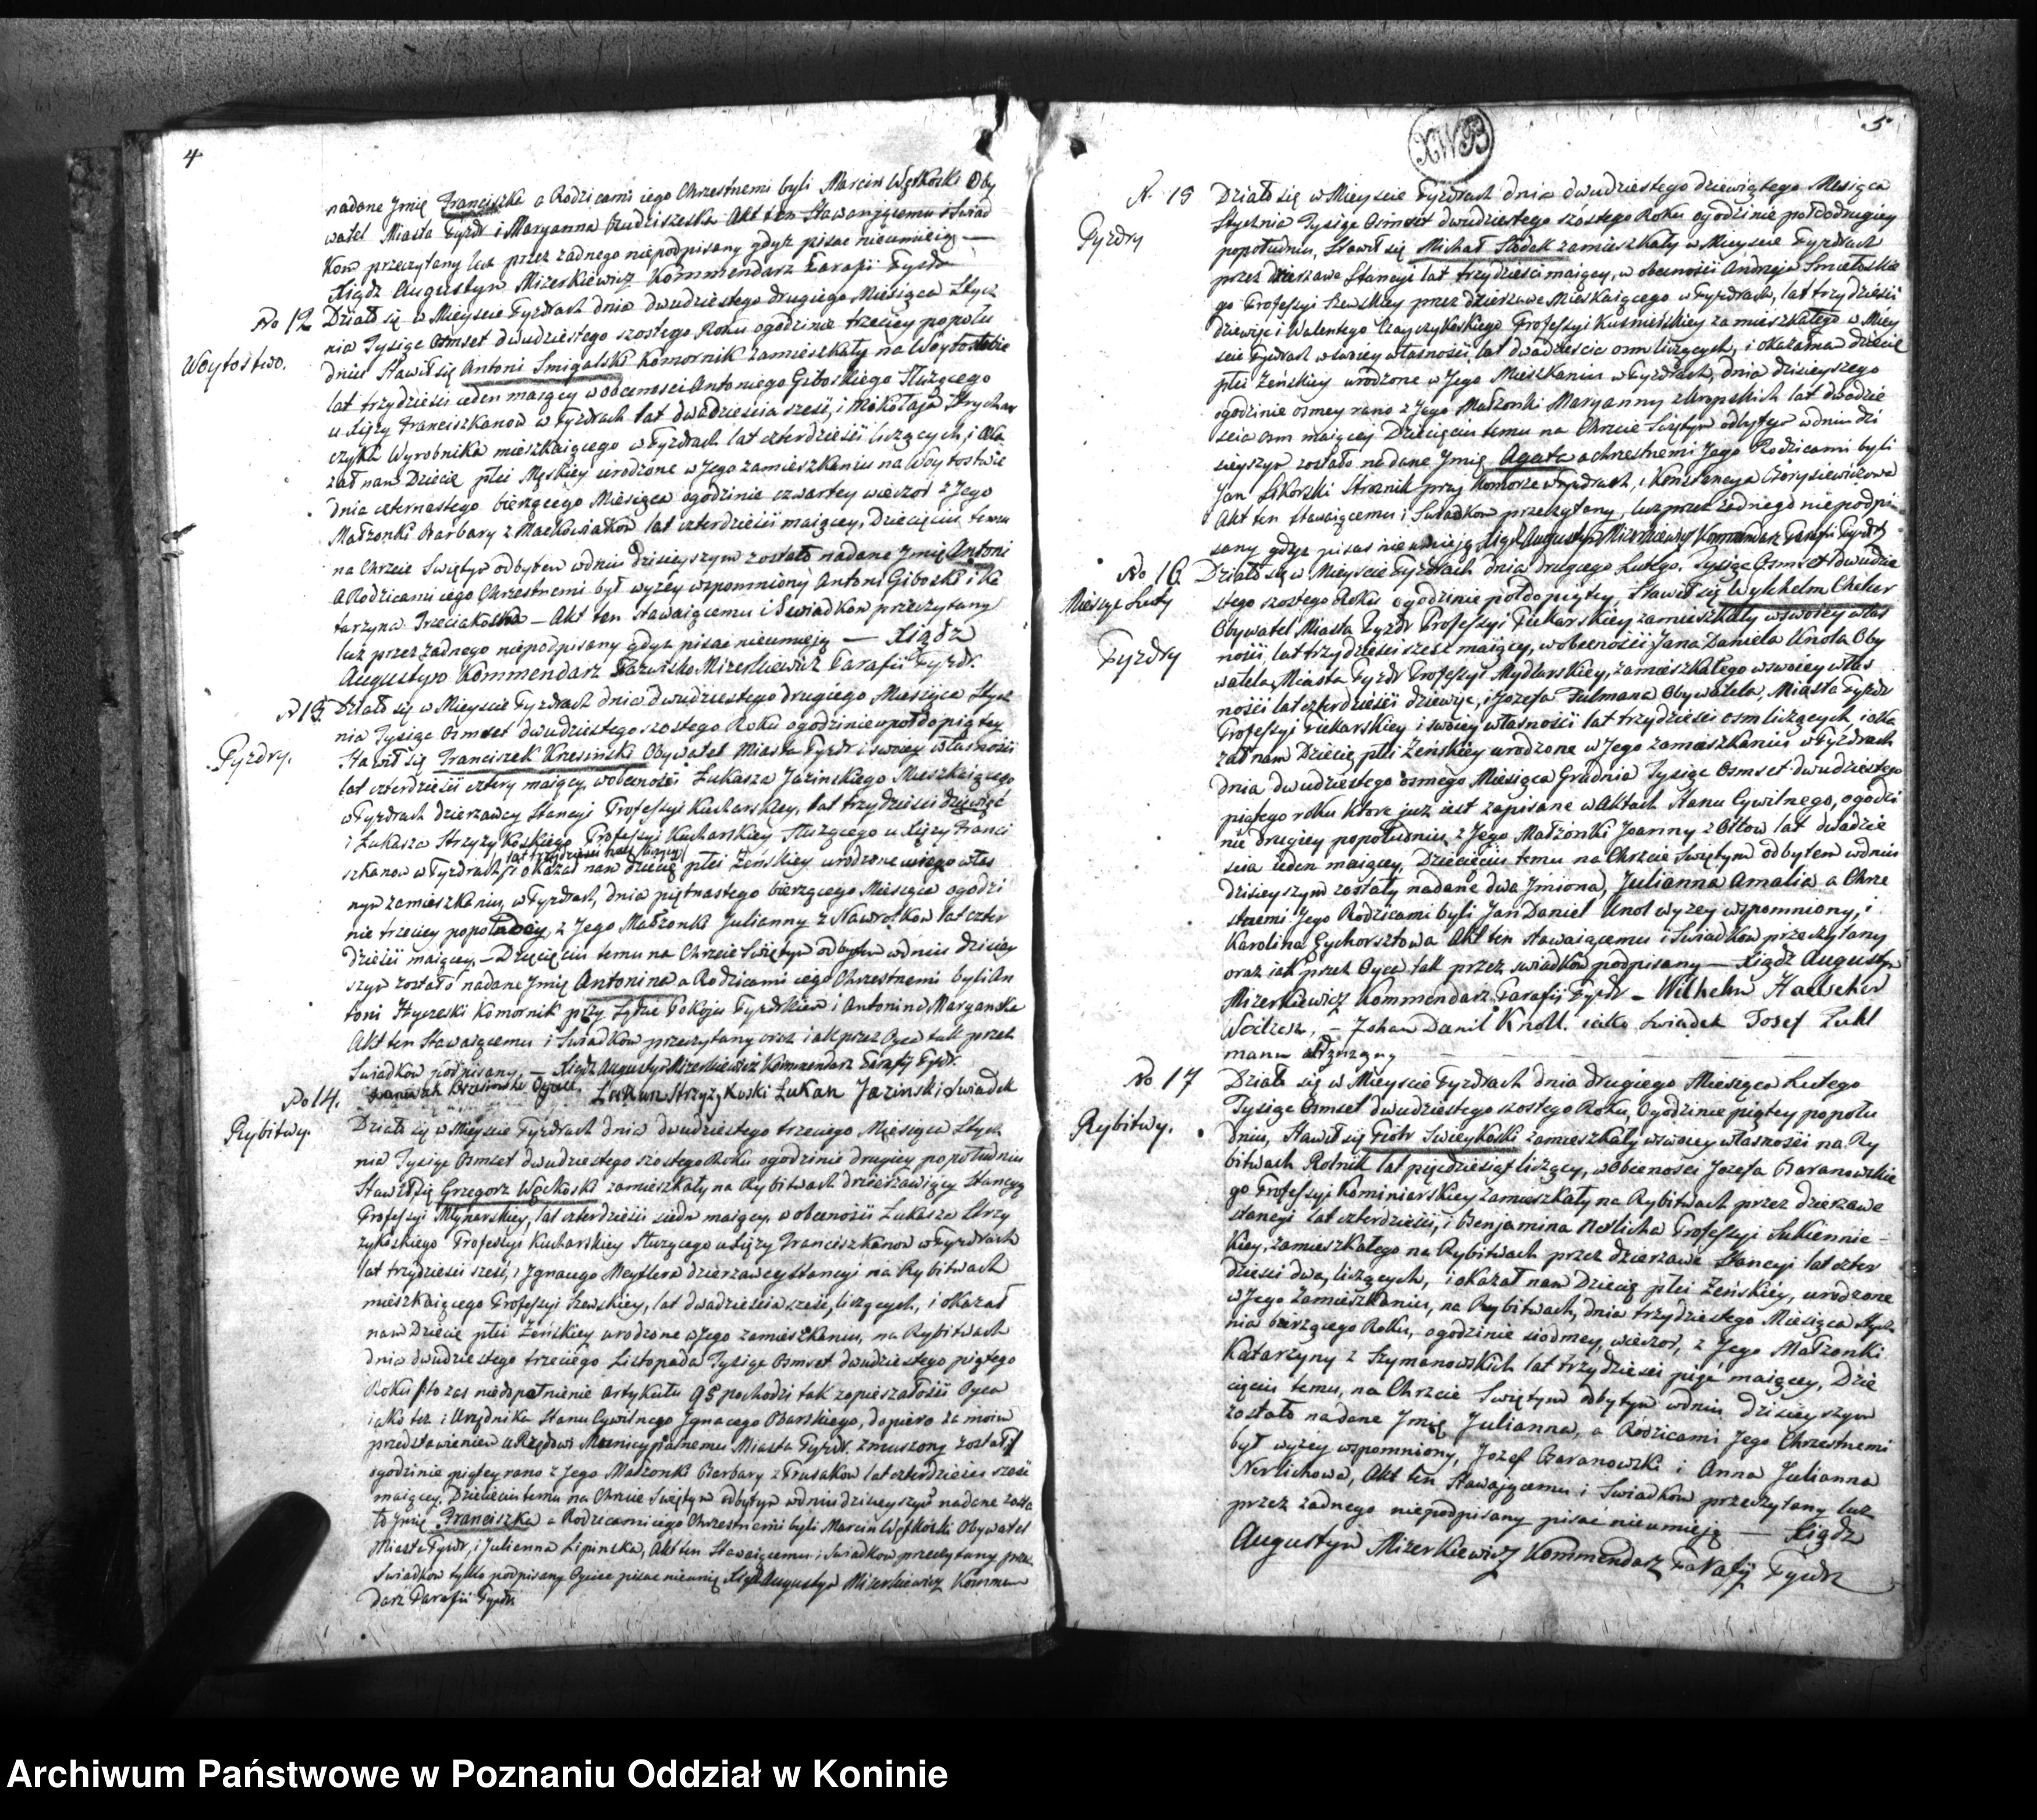 4
nadane Jmię Franciszka a Rodzicami iego Chrzestnemi byli Marcin Wętkoski Oby
watel Miasta Pyzdr i Maryanna Budziszeska Akt ten Stawaiącemu i Swiad
kow przeczytany lecz przez żadnego niepodpisany gdysz pisac nieumieią —
Xiądz Augustyn Mizerkiewicz Kommendarz Parafii Pyzdr
No 12
Woytostwo.
Działo się w Mieyscie Pyzdrach dnia dwudziestego drugiego Miesiąca Stycz
nia Tysiąc Osmset dwudziestego szostego Roku ogodzinie trzeciey popołu
dniu Stawił się Antoni Smigalski Komornik zamieszkały na Woytostwie
lat trzydzieści ieden maiący wobecnosci Antoniego Giboskiego Służącego
u Xięzy Franciszkanow w Pyzdrach lat dwadzieścia sześć, i Mikołaja Strychar
czyka Wyrobnika mieszkaiącego w Pyzdrach lat czterdzieści liczących, i oka
zał nam Dziecię płci Męskiey urodzone w Jego zamieszkaniu na Woytostwie
dnia czternastego bierzącego Miesiąca ogodzinie czwartey wieczor z Jego
Małzonki Barbary z Maćkowiakow lat czterdzieści maiącey, Dziecięciu temu
na Chrzcie Swiętym odbytem wdniu dzisieyszym zostało nadane Jmię Antoni
a Rodzicami iego Chrzestnemi był wyzey wspomniony Antoni Giboski i Ka
tarzyna Trzeciakoska — Akt ten stawaiącemu i Swiadkow przeczytany
lecz przez żadnego niepodpisany gdysz pisac nieumieją — Xiądz
Augustyn Kommendarz Mizerkiewicz Parafii Pyzdr.
N 13.
Pyzdry.
Działo się w Mieyscie Pyzdrach dnia dwudziestego drugiego Miesiąca Stycz
nia Tysiąc Osmset dwudziestego szostego Roku ogodzinie wpołdopiątey
Stawił się Franciszek Krzesinski Obywatel Miasta Pyzdr i swoiey własności
lat czterdzieści cztery maiący, wobecności Łukasza Jazinskiego Mieszkaiącego
w Pyzdrach dzierzawcy Stancyi Professyi Kucharskiey, lat trzydzieści dziewięć
i Łukasza Strzyzykoskiego Professyi Kucharskiey Służącego u Xięzy Franci
szkanow w Pyzdrach i okazał nam dziecię płci Żeńskiey urodzone wiego włas
nym zamieszkaniu, w Pyzdrach, dnia piętnastego bierzącego Miesiąca ogodzi
nie trzeciey popołudniu, z Jego Małzonki Julianny z Nawrotkow lat czter
dzieści maiącey. — Dziecięciu temu na Chrzcie Swiętym odbytem wdniu dzisiey
szym zostało nadane Jmię Antonina a Rodzicami iego Chrzestnemi byli An
toni Komornik przy Sądzie Pokoju Pyzdrskiem i Antonina Marganska
Akt ten Stawaiącemu i Swiadkow przeczytany oraz iak przez Oyca tak przez
Swiadkow podpisany. — Xiądz Augustyn Mizerkiewicz Kommendarz Parafij Pyzdr.
Franciszek Krzesinski Oyciec Łukasz Strzyzykoski Łukasz Jazinski Swiadek
No 14.
Rybitwy.
Działo się w Mieyscie Pyzdrach dnia dwudziestego trzeciego Miesiąca Stycz
nia Tysiąc Osmset dwudziestego szostego Roku ogodzinie drugiey popołudniu
Stawił się Grzegorz Węckoski zamieszkały na Rybitwach dzierzawiący Stancyą
Professyi Młynarskiey, lat czterdzieści siedm maiący, wobecności Łukasza Strzy
zykoskiego Professyi Kucharskiey Służącego u Xięzy Franciszkanow w Pyzdrach
lat trzydzieści sześć, i Jgnacego Meyslera dzierzawcy Stancyi na Rybitwach
mieszkaiącego Professyi Szewskiey, lat dwadzieścia sześć, liczących, i okazał
nam Dziecię płci Żeńskiey urodzone w Jego zamieszkaniu, na Rybitwach
dnia dwudziestego trzeciego Listopada Tysiąc Osmset dwudziestego piątego
Roku to zas niedopełnienie Artykułu 95 pochodzi tak zopieszałości Oyca
iako tez i Urzędnika Stanu Cywilnego Jgnacego Obarskiego, dopiero za moim
przedstawieniem uRzędowi Municypialnemu Miasta Pyzdr. zmuszony został
ogodzinie piątey rano z Jego Małzonki Barbary z Prusakow lat czterdzieści sześć
maiącey. Dziecięciu temu na Chrzcie Swiętym odbytym wdniu dzisieyszym nadane zosta
ło Jmię Franciszka a Rodzicami iego Chrzestnemi byli Marcin Wętkoski Obywatel
Miasta Pyzdr, i Julianna Lipinska, Akt ten Stawaiącemu i Swiadkow przeczytany przez
Swiadkow tylko podpisany Oyciec pisac nieumie Xiądz Augustyn Mizerkiewicz Kommen
darz Parafii Pyzdr
5
XWB
N. 15
Pyzdry
Działo się w Mieyscie Pyzdrach dnia dwudziestego dziewiątego Miesiąca
Stycznia Tysiąc Osmset dwudziestego szostego Roku ogodzinie połdodrugiey
popołudniu, Stawił się Michał Słodek zamieszkały w Mieyscie Pyzdrach
przez dzierzawe Stancyi lat trzydzieści maiący, w obecności Andrzeja Smielowskie
go Professyi Szewskiey przez dzierzawe Mieszkaiącego w Pyzdrach, lat trzydzieści
dziewięć i Walentego Czayczykoskiego Professyi Kusnierskiey zamieszkałego w Miey
scie Pyzdrach wswoiey własności, lat dwadzieście osm liczących, i okazał nam dziecię
płci Żeńskiey urodzone w Jego Mieszkaniu w Pyzdrach, dnia dzisieyszego
ogodzinie osmey rano z Jego Małzonki Maryanny zKropskich lat dwadzie
scia osm maiącey Dziecięciu temu na Chrzcie Swiętym odbytym wdniu dzi
sieyszym zostało nadane Jmię Agata a chrzestnemi Jego Rodzicami byli
Jan Sikorski Stroznik przy Komorze w Pyzdrach, i Konstancya Borysiewiczowa
Akt ten stawaiącemu i Swiadkow przeczytany, lecz przez żadnego niepodpi
sany gdysz pisac nieumieją Xiądz Augustyn Mizerkiewicz Kommendarz Parafii Pyzdr
No 16.
Miesząc Luty
Pyzdry
Działo się w Mieyscie Pyzdrach dnia drugiego Lutego, Tysiąc Osmset dwudzie
stego szostego Roku ogodzinie połdopiątey Stawił się Wylchelm Chelser
Obywatel Miasta Pyzdr Professyi Piekarskiey zamieszkały wswoiey włas
ności, lat trzydzieści sześć maiący, wobecności Jana Daniela Unola Oby
watela, Miasta Pyzdr Professyi Mydlarskiey, zamieszkałego wswoiey włas
ności lat czterdzieści dziewięc, i Jozefa Pulmana Obywatela, Miasta Pyzdr
Professyi Piekarskiey i swoiey własności lat trzydzieści osm liczących, i oka
zał nam Dziecię płci Żeńskiey urodzone w Jego zamieszkaniu w Pyzdrach
dnia dwudziestego osmego Miesiąca Grudnia Tysiąc Osmset dwudziestego
piątego roku ktore juz iest zapisane w Aktach Stanu Cywilnego, ogodzi
nie drugiey popołudniu, z Jego Małzonki Joanny z Ottow lat dwadzie
scia ieden maiącey, Dziecięciu temu na Chrzcie Swiętym odbytem wdniu
dzisieyszym zostały nadane dwa Jmiona, Julianna Amalia a Chrze
stnemi Jego Rodzicami byli Jan Daniel Unol wyzey wspomniony, i
Karolina Gychorsztowa Akt ten stawaiącemu i Swiadkow przeczytany
oraz iak przez Oyca tak przez swiadków podpisany — Xiądz Augustyn
Mizerkiewicz Kommendarz Parafij Pyzdr — Wilhelm Haelscher
— Johan Danil Knoll. iako swiadek Josef Puhl
mann
No 17
Rybitwy.
Działo się w Mieyscie Pyzdrach dnia drugiego Miesiąca Lutego
Tysiąc Osmset dwudziestego szostego Roku, Ogodzinie piątey popołu
dniu, Stawił się Piotr Swieykoski zamieszkały wswoiey własności na Ry
bitwach Rolnik lat pięcdziesiąt liczący, wObecności Jozefa Baranowskie
go Professyi Kominiarskiey zamieszkały na Rybitwach przez dzierzawe
stancyi lat czterdzieści, i Benjamina Nerlicha Professyi Sukiennic-
kiey, zamieszkałego na Rybitwach przez dzierzawe Stancyi lat czter
dzieści dwa, liczących, i okazał nam Dziecię płci Żeńskiey, urodzone
w Jego Zamieszkaniu, na Rybitwach, dnia trzydziestego Miesiąca Stycz
nia bierzącego Roku, ogodzinie siodmey, wieczor, z Jego Małzonki
Katarzyny z Szymanowskich lat trzydzieści pięć maiącey, Dzie
cięciu temu, na Chrzcie Swiętym odbytym wdniu dzisieyszym
zostało nadane Jmię Julianna, a Rodzicami Jego Chrzestnemi
był wyzey wspomniony, Jozef Baranowski i Anna Julianna
Nerlichowa, Akt ten Stawającemu i Swiadkow przeczytany lecz
przez żadnego niepodpisany pisac nieumieją — Xiądz
Augustyn Mizerkiewicz Kommendarz Parafij Pyzdr
Archiwum Państwowe w Poznaniu Oddział w Koninie